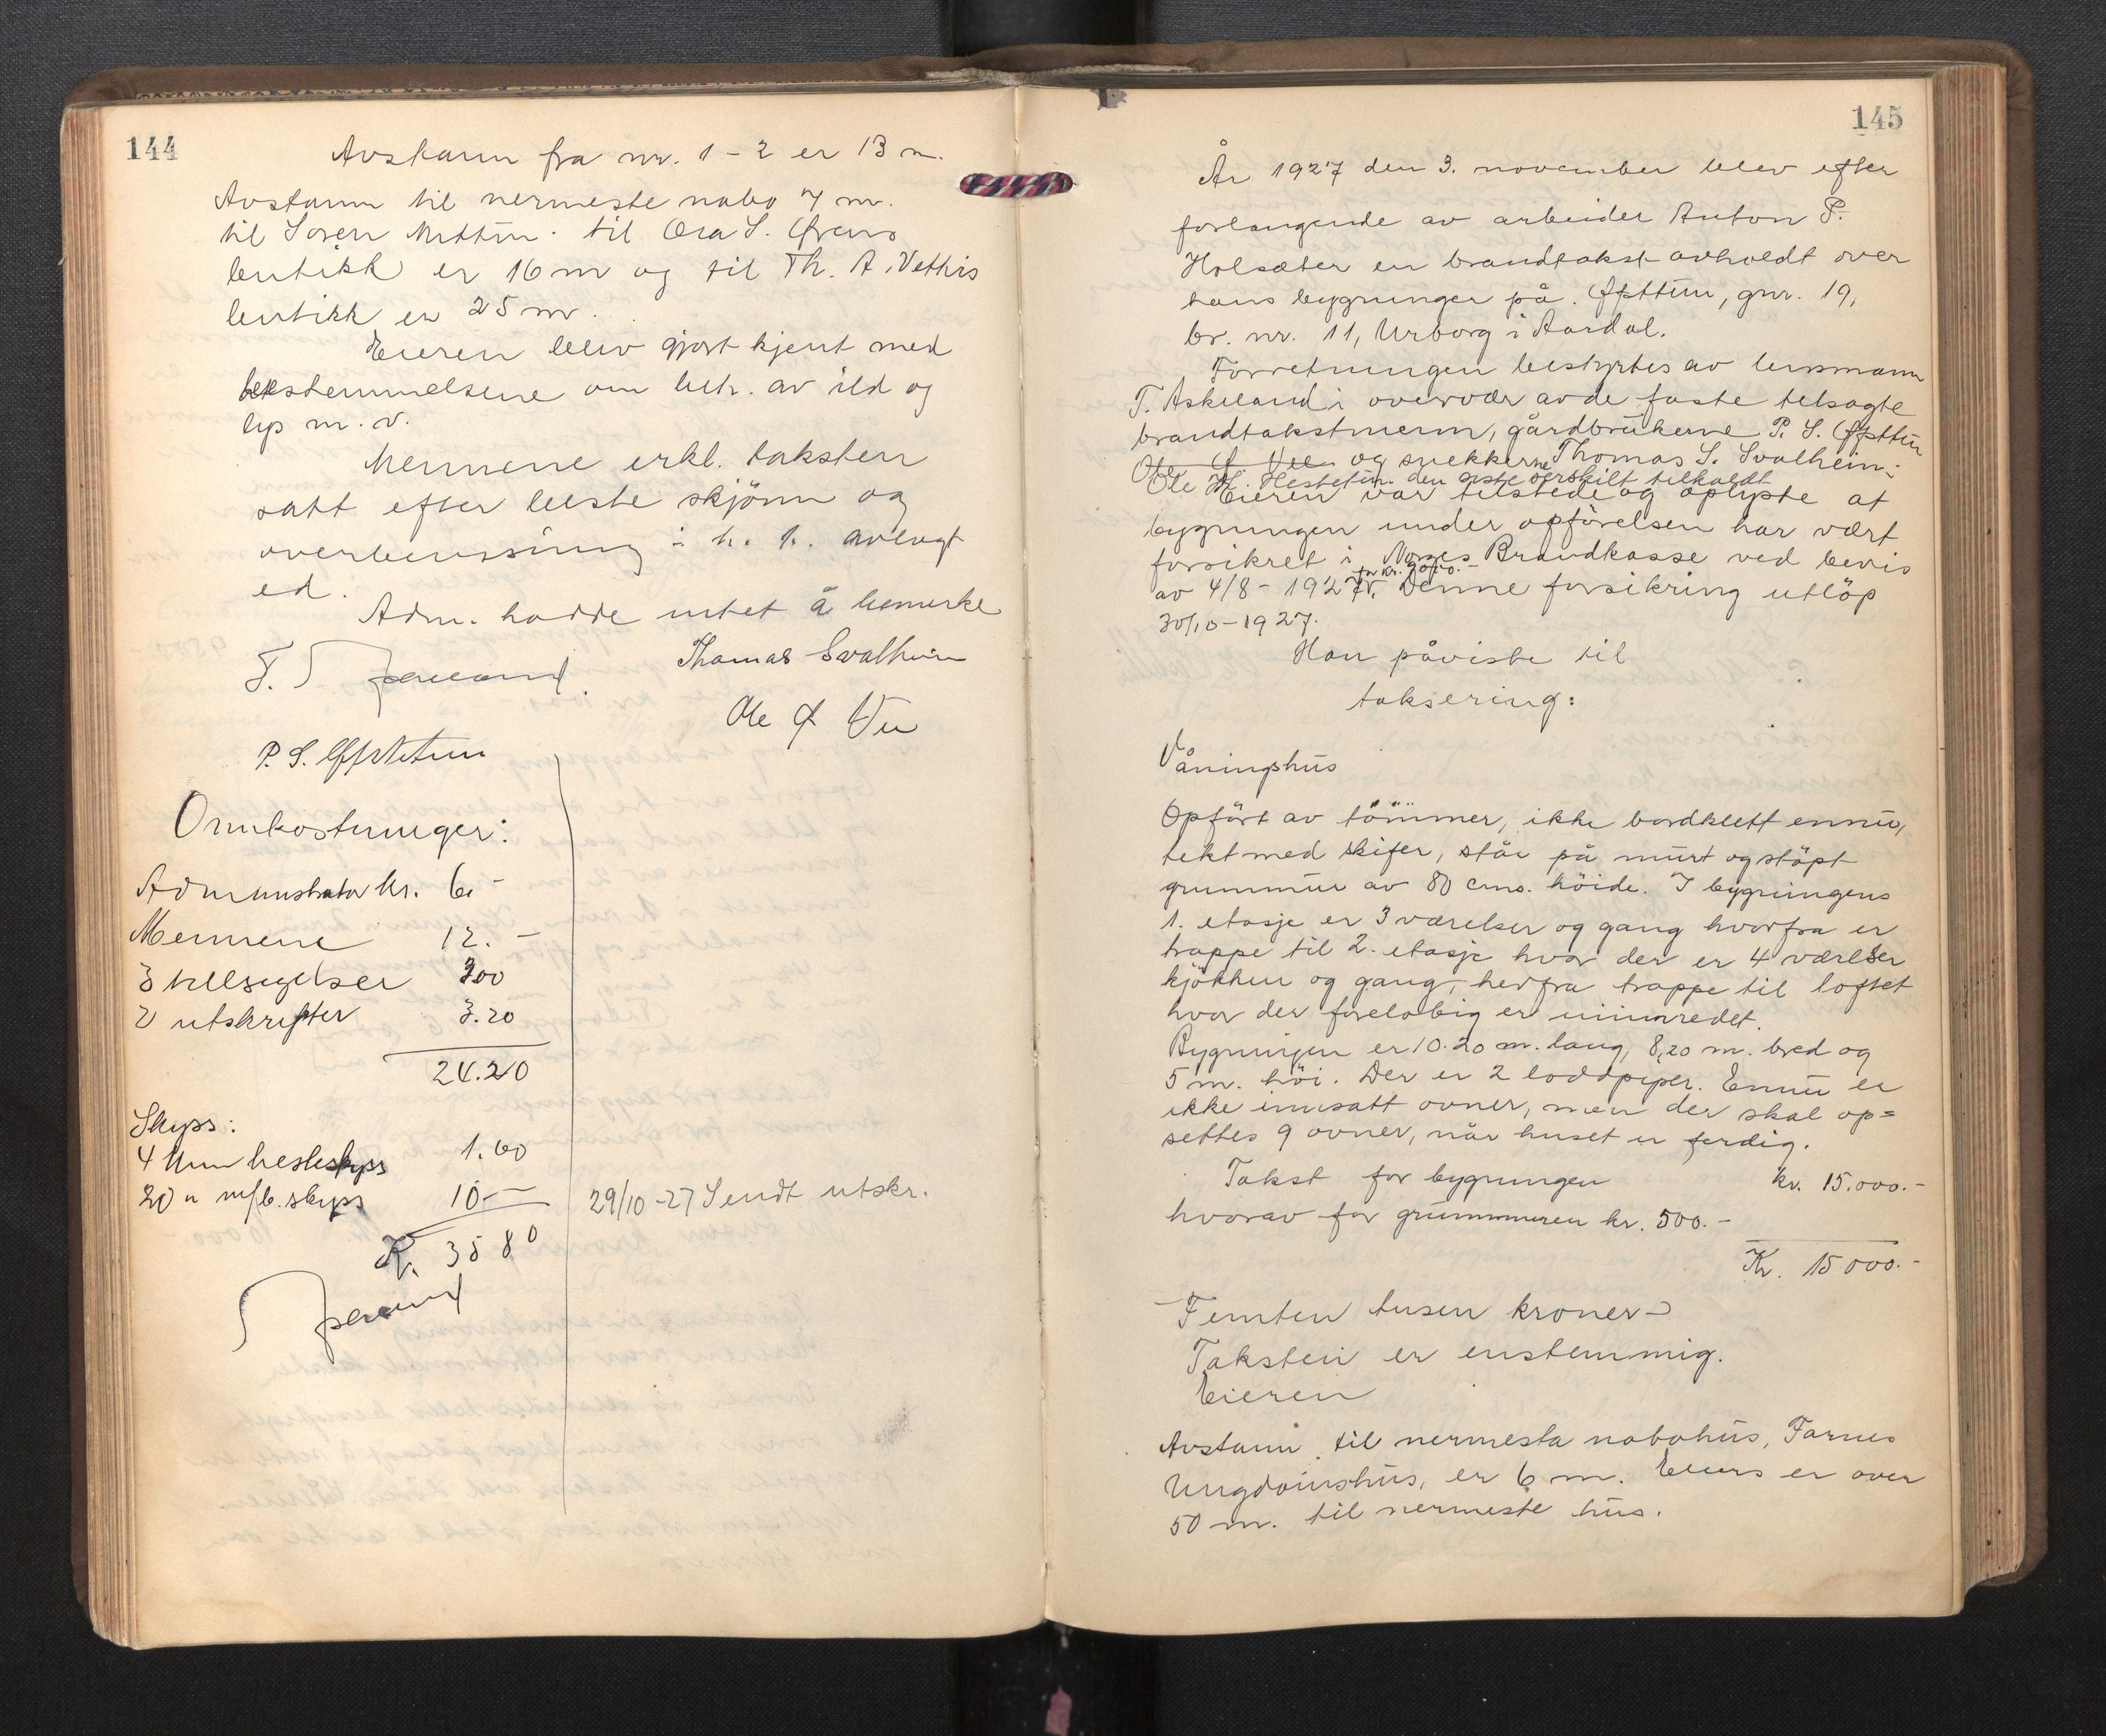 144
Avstann fra nr. 1 - 2 er 13 m.
Avstann til nermeste nabo 7 m.
til Soren Nettun. til Ola S. Øvens
butikk er 16 m og til Th. A. Vettis
butikk er 25 m.
Eieren blev gjort kjent med
bestemmelsene om beh. av ild og
lys m. v.
Mennene erkl. taksten
satt efter beste skjönn og
overbevisning i h. t. avlagt
ed.
Adm. hadde intet å bemerke
Thomas Svalheim
Ole Ø Vee
P. S. Øfsttun
Omkostninger:
Administrator kr. 6.-
Mennene 12. -
3 tilsigelser 300
2 utskrifter 3.20
24.20
Skyss:
4 km hesteskyss 1.60
20 " m/b. skyss 10 -
29/10 -27 Sendt utskr.
Kr. 35 80
145
År 1927 den 3. november blev efter
forlangende av arbeider Anton P.
Holsæter en brandtakst avholdt over
hans bygninger på Øfsttun, gnr. 19,
br. nr. 11, Urborg i Aardal.
Forretningen bestyrtes av lensmann
T. Askeland i overvær av de faste tilsagte
brandtakstmenn, gårdbrukerne P. S. Øfsttun
Ole Ø Vee og snekkerne Thomas S. Svalheim.
Ole H. Hestetun. den siste serskilt tilkaldt
Eieren var tilstede og oplyste at
bygningen under opförelsen har vært
forsikret i Norges Brandkasse ved bevis
for kr. 9000.-
av 4/8 - 1927. Denne forsikring utlöp
30/10 - 1927.
Han påviste til
taksering:
Våningshus
Opfört av tömmer, ikke bordklett ennu,
tekt med skifer, står på murt og stöpt
grunnmur av 80 cms. höide. I bygningens
1. etasje er 3 værelser og gang hvorfra er
trappe til 2. etasje hvor der er 4 værelser
kjökken og gang, herfra trappe til loftet
hvor der foreløbig er uinnredet.
Bygningen er 10.20 m. lang, 8,20 m. bred og
5 m. höi. Der er 2 loddpiper. Ennu er
ikke innsatt ovner, men der skal op=
settes 9 ovner, når huset er ferdig.
Takst for bygningen kr. 15.000.-
hvorav for grunnmuren kr. 500.-
Kr. 15000.-
- Femten tusen kroner -
Taksten er enstemmig.
Eieren
Avstann til nermesta nabohus, Farnes
Ungdomshus, er 6 m. Ellers er over
50 m. til nermeste hus.